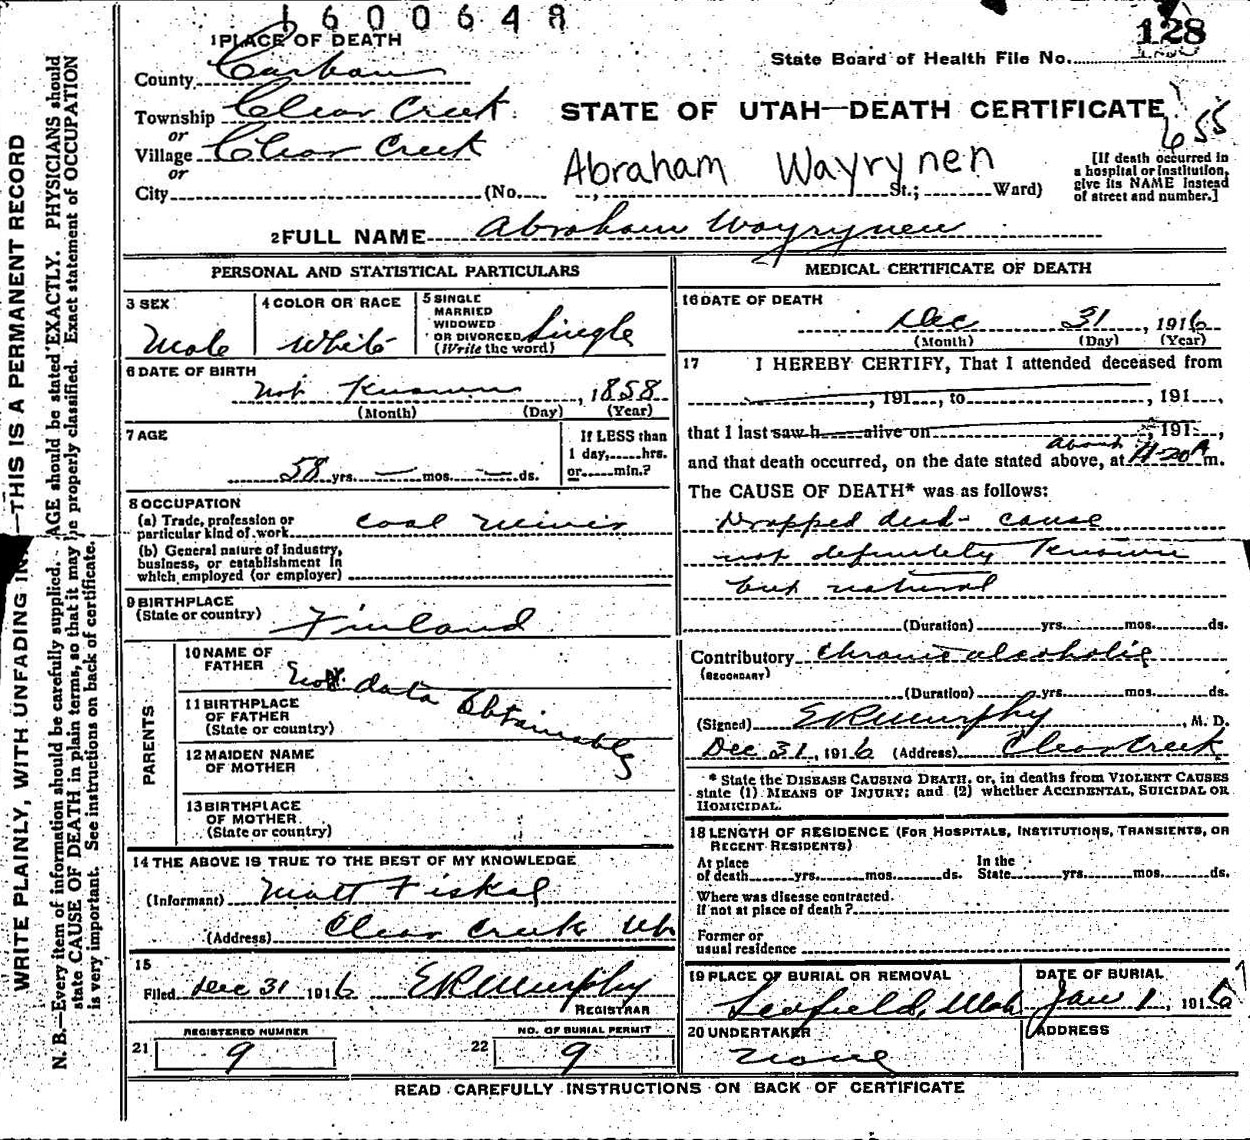 1600648
128
1 PLACE OF DEATH
State Board of Health File No.
County Carbon
Township Clear Creek
STATE OF UTAH—DEATH CERTIFICATE
or
655
Village Clear Creek
or
Abraham Wayrynen
City (No. St.; Ward)
[If death occurred in
a hospital or institution,
give its NAME instead
of street and number.]
2 FULL NAME Abraham Wayrynen
PERSONAL AND STATISTICAL PARTICULARS
3 SEX
Male
4 COLOR OR RACE
White
5 SINGLE
MARRIED
WIDOWED
OR DIVORCED
(Write the word)
Single
6 DATE OF BIRTH
Not Known, 1858
(Month) (Day) (Year)
7 AGE
58 yrs. — mos. — ds.
If LESS than
1 day, hrs.
or min.?
8 OCCUPATION
(a) Trade, profession or
particular kind of work Coal Miner
(b) General nature of industry,
business, or establishment in
which employed (or employer)
9 BIRTHPLACE
(State or country) Finland
PARENTS
10 NAME OF
FATHER
Not data Obtainable
11 BIRTHPLACE
OF FATHER
(State or country)
12 MAIDEN NAME
OF MOTHER
13 BIRTHPLACE
OF MOTHER
(State or country)
14 THE ABOVE IS TRUE TO THE BEST OF MY KNOWLEDGE
(Informant) Matt
(Address) Clear Creek Uh
15
Filed Dec 31 1916 ERMurphy
REGISTRAR
REGISTERED NUMBER
21 9
NO. OF BURIAL PERMIT
22 9
MEDICAL CERTIFICATE OF DEATH
16 DATE OF DEATH
Dec 31, 1916
(Month) (Day) (Year)
17 I HEREBY CERTIFY, That I attended deceased from
, 191 , to , 191 ,
that I last saw h alive on , 191 ,
about
and that death occurred, on the date stated above, at 11-20 A m.
The CAUSE OF DEATH* was as follows:
Dropped dead - cause
not definitely Known
but natural
(Duration) yrs. mos. ds.
Contributory Chronic alcoholic
(SECONDARY)
(Duration) yrs. mos. ds.
(Signed) ERMurphy, M. D.
Dec 31, 1916 (Address) Clear Creek
* State the DISEASE CAUSING DEATH, or, in deaths from VIOLENT CAUSES
state (1) MEANS OF INJURY; and (2) whether ACCIDENTAL, SUICIDAL OR
HOMICIDAL.
18 LENGTH OF RESIDENCE (FOR HOSPITALS, INSTITUTIONS, TRANSIENTS, OR
RECENT RESIDENTS)
At place
of death yrs. mos. ds.
In the
State yrs. mos. ds.
Where was disease contracted.
If not at place of death?
Former or
usual residence
19 PLACE OF BURIAL OR REMOVAL
Scofield, Utah
DATE OF BURIAL
Jan 1, 1916
20 UNDERTAKER
None
ADDRESS
READ CAREFULLY INSTRUCTIONS ON BACK OF CERTIFICATE
WRITE PLAINLY, WITH UNFADING IN —THIS IS A PERMANENT RECORD
N. B.—Every item of information should be carefully supplied. AGE should be stated EXACTLY. PHYSICIANS should
state CAUSE OF DEATH in plain terms, so that it may be properly classified. Exact statement of OCCUPATION
is very important. See instructions on back of certificate.